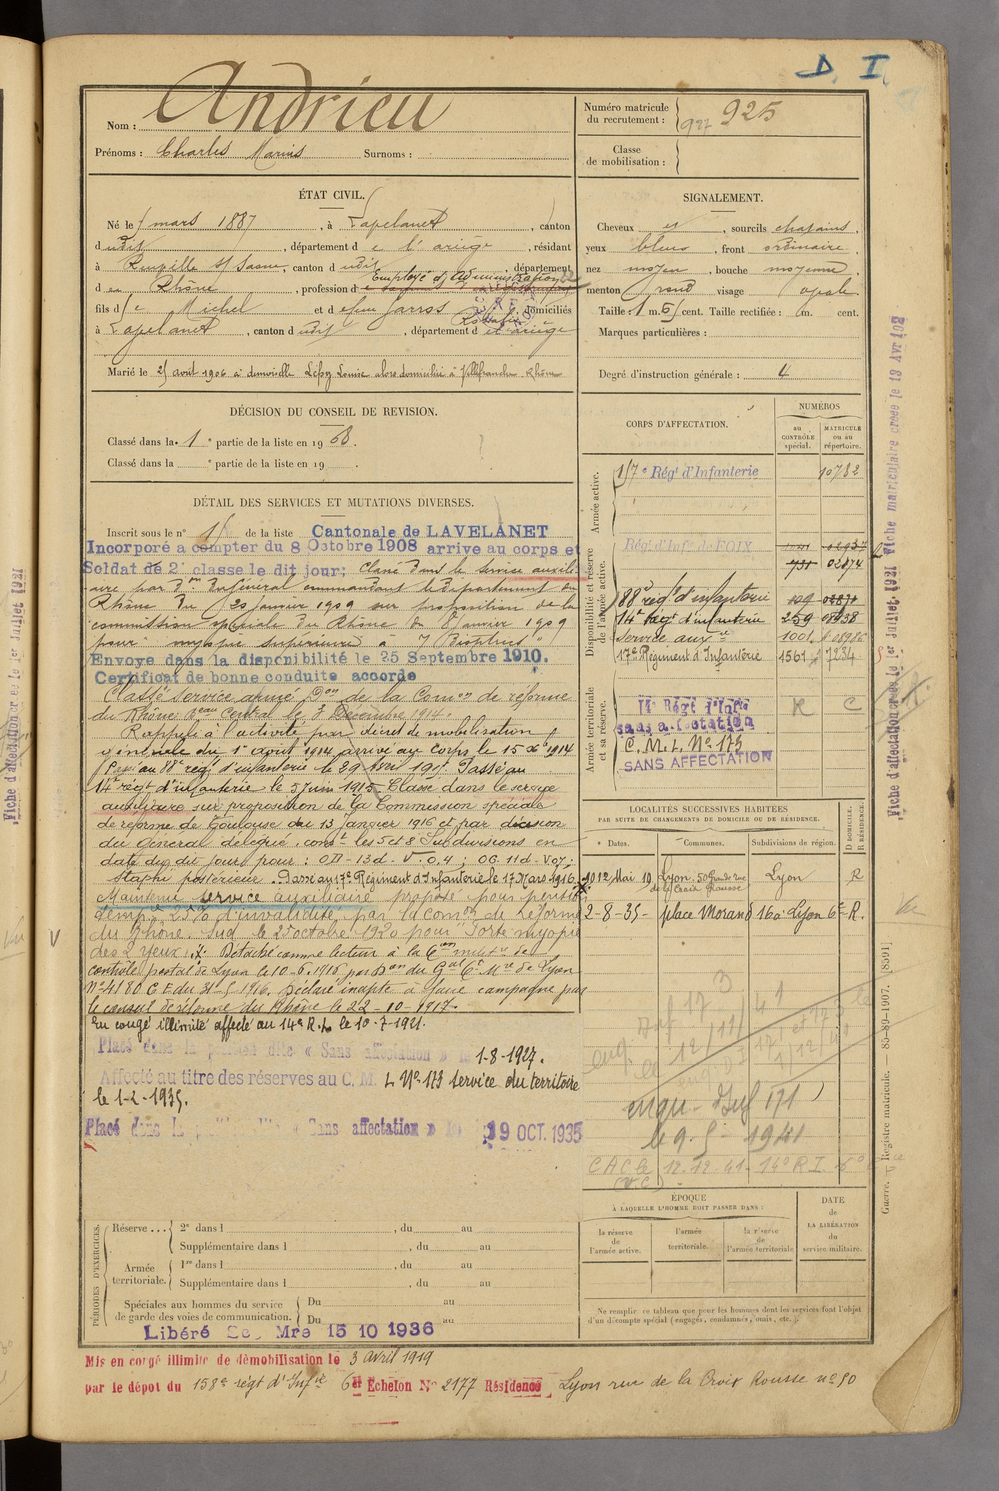 D. I.
Nom : Andrieu
Prénoms : Charles Marius Surnoms :
Numéro matricule du recrutement : 927 925
Classe de mobilisation :
ÉTAT CIVIL.
Né le mars 1887, à Lapelanet, canton
dudit, département de l'ariège, résidant
à S/ Saone, canton dudit, département
d u Rhône, profession d Employé d'administration
fils de Michel et de feue Jarros domiciliés
à Lapelanet, canton dudit, département d et ariège
Marié le 25 août 1906 à demoiselle Louise alors domiciliée à Villefranche Rhône
SIGNALEMENT.
Cheveux et, sourcils chatains,
yeux bleus, front ordinaire,
nez moyen, bouche moyenne,
menton rond visage ovale
Taille : 1 m. 61 cent. Taille rectifiée : m. cent.
Marques particulières :
Degré d'instruction générale : 4
DÉCISION DU CONSEIL DE REVISION.
Classé dans la 1e partie de la liste en 1908.
Classé dans la e partie de la liste en 19 .
CORPS D'AFFECTATION.
NUMÉROS
au CONTRÔLE spécial.
MATRICULE ou au répertoire.
Armée active.
157e Régt d'Infanterie 10782
Disponibilité et réserve de l'armée active.
Régt d'Infie de FOIX
731 02874
88e rég. d'infanterie
14e rég. d'infanterie 259
Service auxre 1001
17e Régiment d'Infanterie 1561 7234
Armée territoriale et sa réserve.
14e Régt d'Infie R C
sans affectation
C.M.L. No 173
SANS AFFECTATION
DÉTAIL DES SERVICES ET MUTATIONS DIVERSES.
Inscrit sous le n° 15 de la liste Cantonale de LAVELANET
Incorporé a compter du 8 Octobre 1908 arrive au corps et
Soldat de 2e classe le dit jour; Classé dans le service auxili-
aire par Don du Général commandant le département du
Rhône du 20 janvier 1909 sur proposition de la
commission spéciale du Rhône du 8 janvier 1909
pour myopie supérieure à 7 Dioptries"
Envoye dans la disponibilité le 25 Septembre 1910.
Certificat de bonne conduite accordé
Classé service armé Don de la Comon de réforme
du Rhône Beau Central le 7 Décembre 1914.
Rappelé à l'activité par décret de mobilisation
générale du 1er août 1914 arrivé au corps le 15 Xbre 1914
Passé au 88e régt d'infanterie le 29 avril 1915. Passé au
14e régt d'infanterie le 5 juin 1915. Classé dans le service
auxiliaire sur proposition de la Commission spéciale
de réforme de Toulouse du 13 Janvier 1916 et par décision
du Général délégué, comt les 5 et 8 Subdivisions en
date du dit jour pour : OD-13d-V=0,4; OG 11d-V07.
Staphi postérieur. Passé au 17e Régiment d'Infanterie le 17 Mars 1916.
Maintenu service auxiliaire proposé pour pension
temp. 25% d'invalidité, par la comon de Réforme
du Rhône Sud le 25 octobre 1920 pour "Forte myopie
des 2 yeux". Détaché comme lecteur à la Con milit. de
contrôle postal de Lyon le 10-6-1916 par Don du Gal Ct Mre de Lyon
No 4180 CF du 31-5-1916. Déclaré inapte à faire campagne par
le conseil de réforme du Rhône le 22-10-1917.
En congé illimité affecté au 14e R.I. le 10-7-1921.
Placé dans la position dite « Sans affectation » le 1-8-1927.
Affecté au titre des réserves au C. M. L No 173 service du territoire
le 1-2-1935.
Placé dans la position dite « Sans affectation » le 19 OCT. 1935
LOCALITÉS SUCCESSIVES HABITÉES
PAR SUITE DE CHANGEMENTS DE DOMICILE OU DE RÉSIDENCE.
Dates. Communes. Subdivisions de région. D DOMICILE. R RÉSIDENCE.
12 Mai 10 Lyon, 50 Grande rue de la Croix Rousse Lyon R
2-8-35- place Morand 16a Lyon 6e- R.
12/11/41
le 9-5-1941
12-12-41- 14e R I
ÉPOQUE
À LAQUELLE L'HOMME DOIT PASSER DANS :
la réserve de l'armée active.
l'armée territoriale.
la réserve de l'armée territoriale
DATE de LA LIBÉRATION du service militaire.
Ne remplir ce tableau que pour les hommes dont les services font l'objet
d'un décompte spécial (engagés, condamnés, omis, etc.).
PÉRIODES D'EXERCICES.
Réserve ... 2e dans l , du au
Supplémentaire dans l , du au
Armée territoriale. 1re dans l , du au
Supplémentaire dans l , du au
Spéciales aux hommes du service Du au
de garde des voies de communication. Du au
Libéré Mre 15 10 1936
Mis en congé illimité de démobilisation le 3 avril 1919
par le dépot du 158e régt d'Infie 6e Echelon No 2177 Résidence Lyon rue de la Croix Rousse no 50
Fiche d'affectation créée le 1er Juillet 1921
Fiche matriculaire créée le 13 Avr 192
Guerre. Registre matricule. - 85-89-1907. [8391]